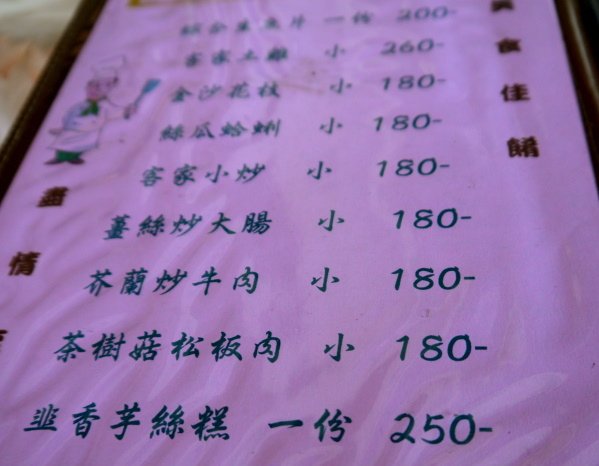 綜合生魚片 一份 200-
客家土雞 小 260-
金沙花枝 小 180-
絲瓜蛤蜊 小 180-
客家小炒 小 180-
薑絲炒大腸 小 180-
芥蘭炒牛肉 小 180-
茶樹菇松板肉 小 180-
韭香芋絲糕 一份 250-
美食佳餚
盡情